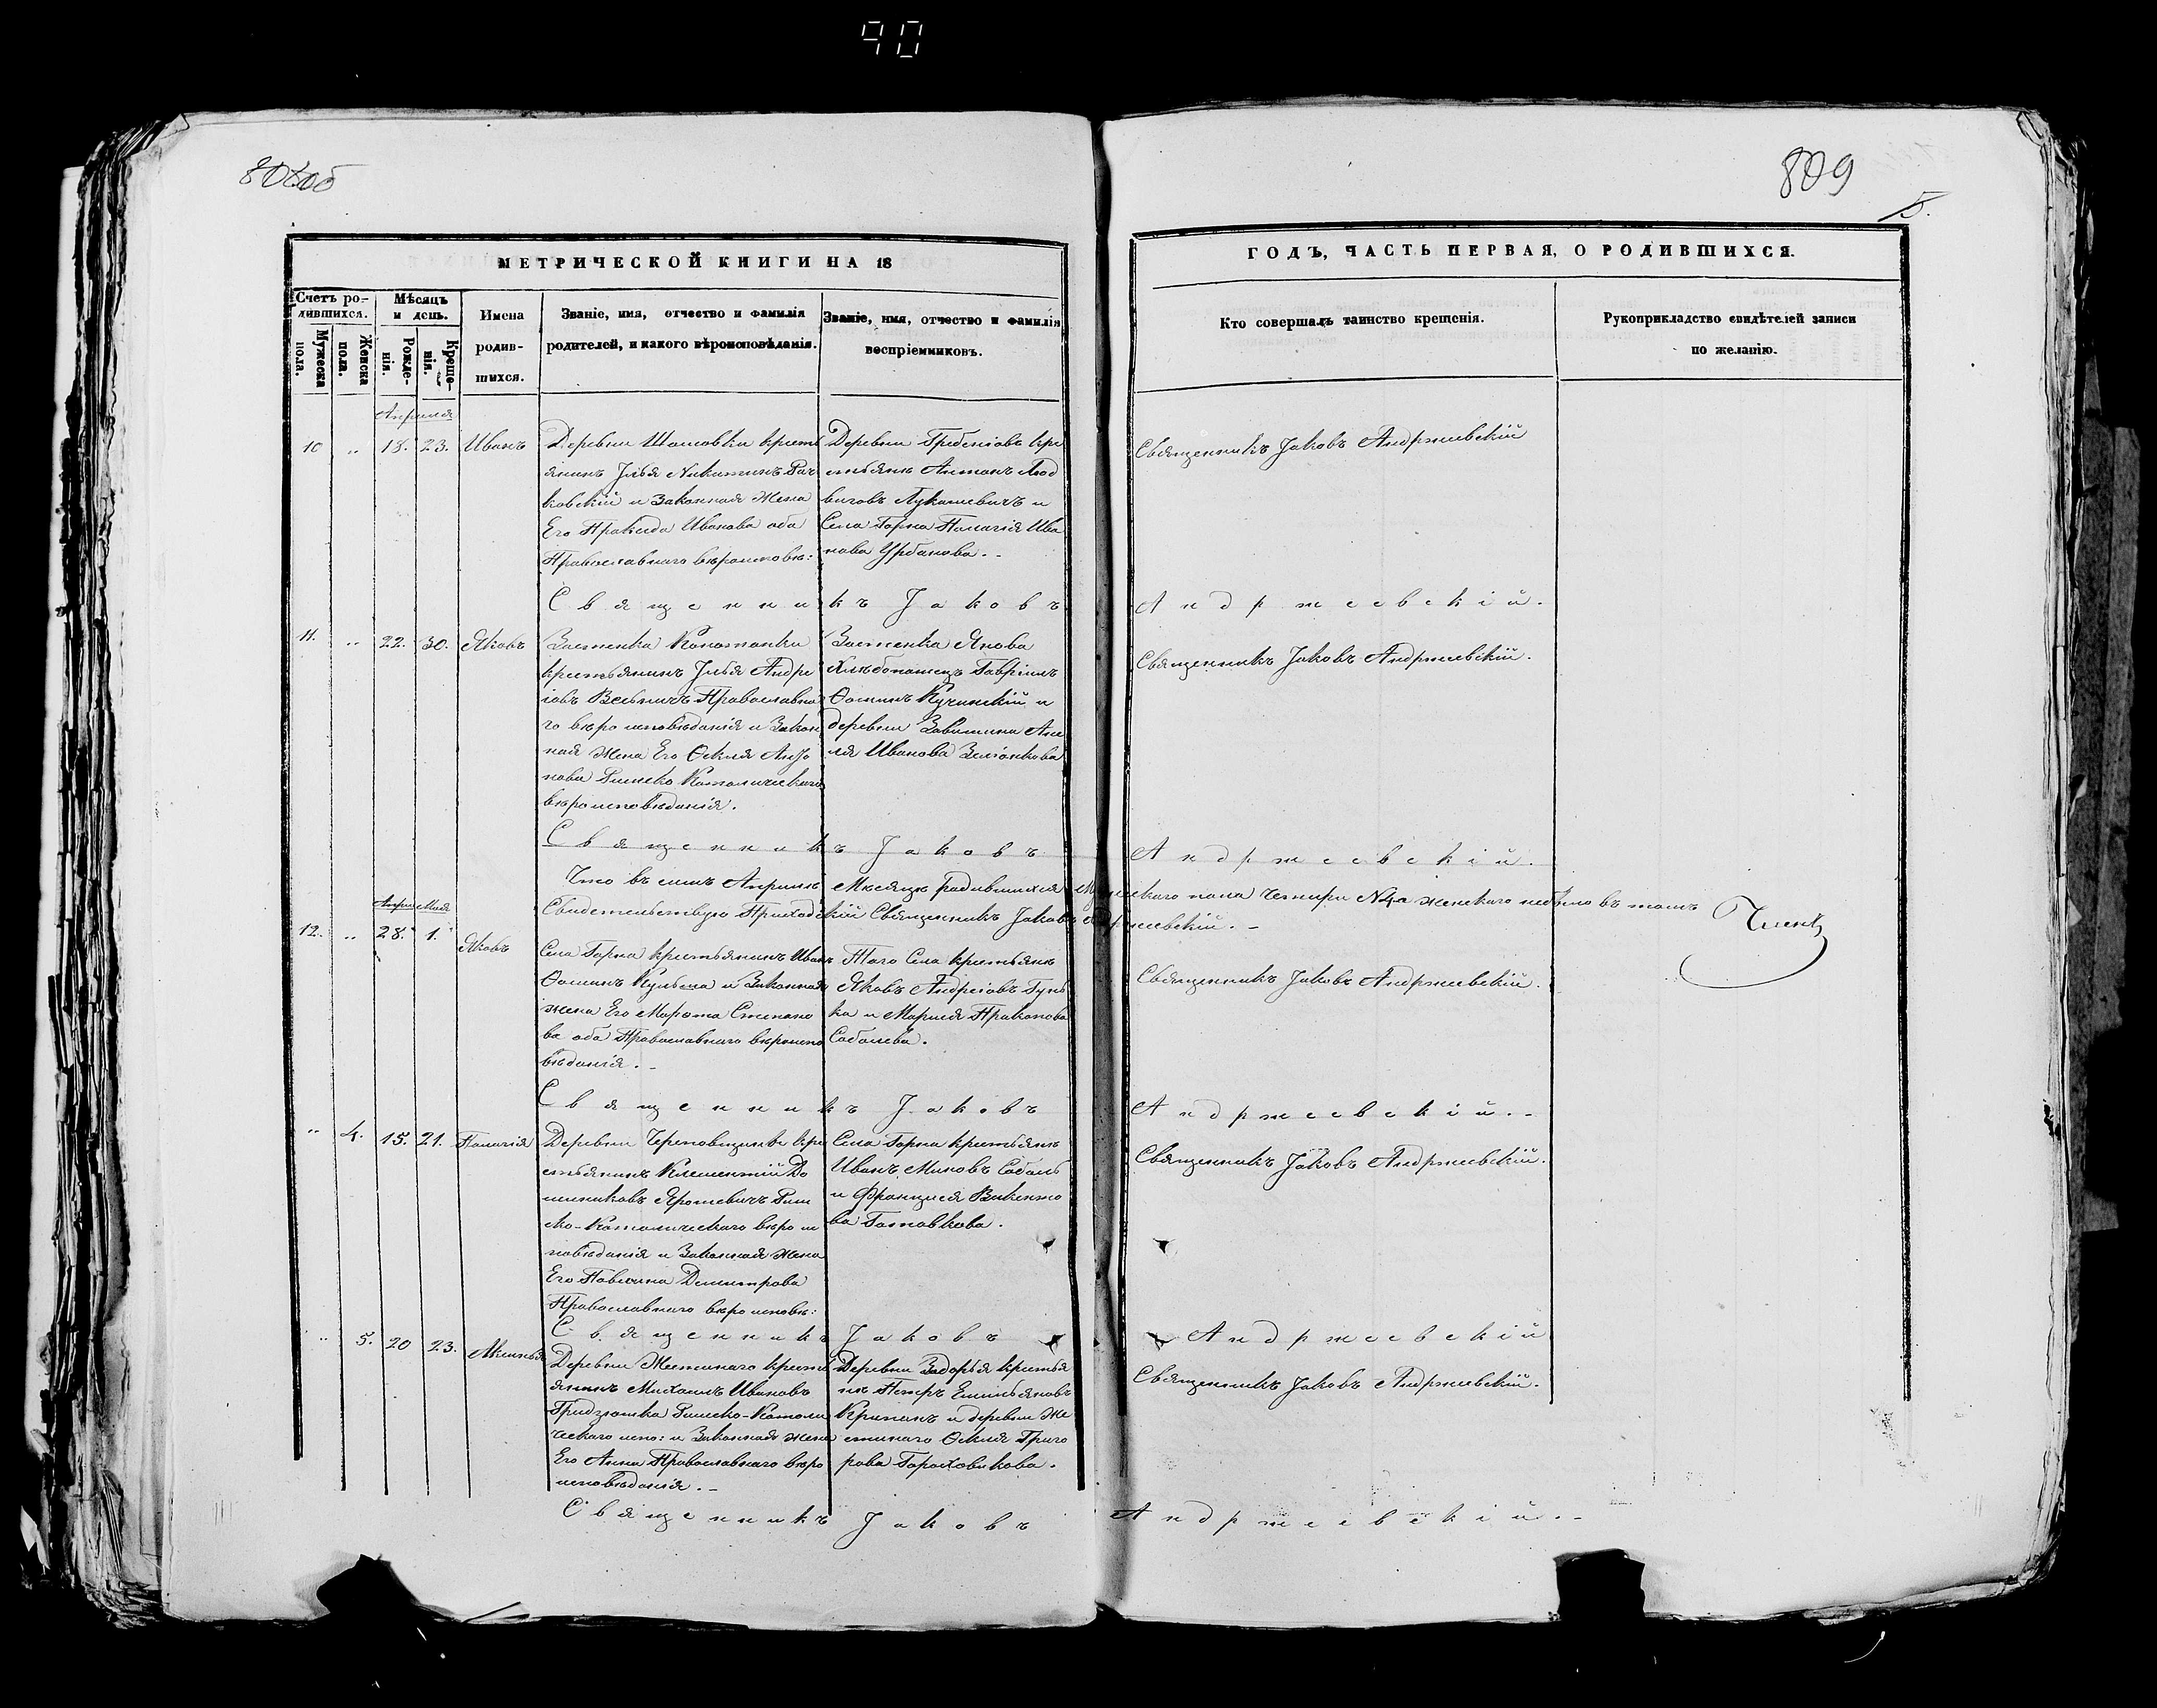 90
808об
809
5.
МЕТРИЧЕСКОЙ КНИГИ НА 18
ГОДЪ, ЧАСТЬ ПЕРВАЯ, О РОДИВШИХСЯ.
Счетъ ро-
дившихся.
Мужеска
пола.
Женска
пола.
Мѣсяцъ
и день.
Рожде-
нія.
Креще-
нія.
Имена
родив-
шихся.
Званіе, имя, отчество и фамилія
родителей, и какого вѣроисповѣданія.
Званіе, имя, отчество и фамилія
воспріемниковъ.
Кто совершалъ таинство крещенія.
Рукоприкладство свидѣтелей записи
по желанію.
Апреля
10 " 18. 23. Иванъ
Деревни крест
янинъ Илья Никитинъ
ковскій и Законная Жена
Его Пракседа Иванова оба
Православнаго вѣроисповѣ:
Деревни кре
стьянъ Антонъ Люд
виговъ Лукашевичъ и
Села Горна Палагія Ива
нова Урбанова. -
Священникъ Іаковъ Андржеевскій
Священникъ Іаковъ Андржеевскій.
11. " 22. 30. Яковъ
Застенка
крестьянинъ Илья Андре
іовъ Православна
го вѣроисповѣданія и Закон
ная Жена Его Ѳекля
нова Римско Католическаго
вѣроисповѣданія.
Застенка Янова
Хлѣбопашецъ Гавріилъ
Ѳоминъ Кучинскій и
деревни Ане
ля Иванова
Священникъ Іаковъ Андржеевскій.
Священникъ Іаковъ Андржеевскій.
Что въ семъ Априлѣ Мѣсяцѣ родившихся Мужескаго пола четыри №4 а женскаго небыло въ томъ
Свидетельствую Приходскій Священникъ Іаковъ Андржеевскій. -
Мая
12. " 28. 1. Яковъ
Села Горна крестьянинъ Иванъ
Ѳоминъ и Законная
жена Его Марѳта Степано
ва оба Православнаго вѣроиспо
вѣданія. -
Того Села крестьянъ
Яковъ Андреіовъ Гунь
ка и Марыя
Соболева.
Священникъ Іаковъ Андржеевскій.
Священникъ Іаковъ Андржеевскій. -
" 4. 15. 21. Палагія
Деревни кре
стьянинъ Клементій До
миниковъ Ярошевичъ Рим
ско-Католическаго вѣро ис
повѣданія и Законная жена
Его Павлина Демитрова
Православнаго вѣро исповѣ:
Села Горна крестьянъ
Иванъ Миновъ Соболь
и Францися Викенто
ва
Священникъ Іаковъ Андржеевскій.
Священникъ Іаковъ Андржеевскій
" 5. 20 23.
Деревни Жестинаго крестьъ
янинъ Михаилъ Ивановъ
Римско-Католи
ческаго испо: и Законная жена
Его Анна Православнаго вѣро
исповѣданія. -
Деревни Задорья крестья
нъ Петръ Емильяновъ
и деревни Же
стинаго Ѳекля Григо
рова
Священникъ Іаковъ Андржеевскій.
Священникъ Іаковъ Андржеевскій. -